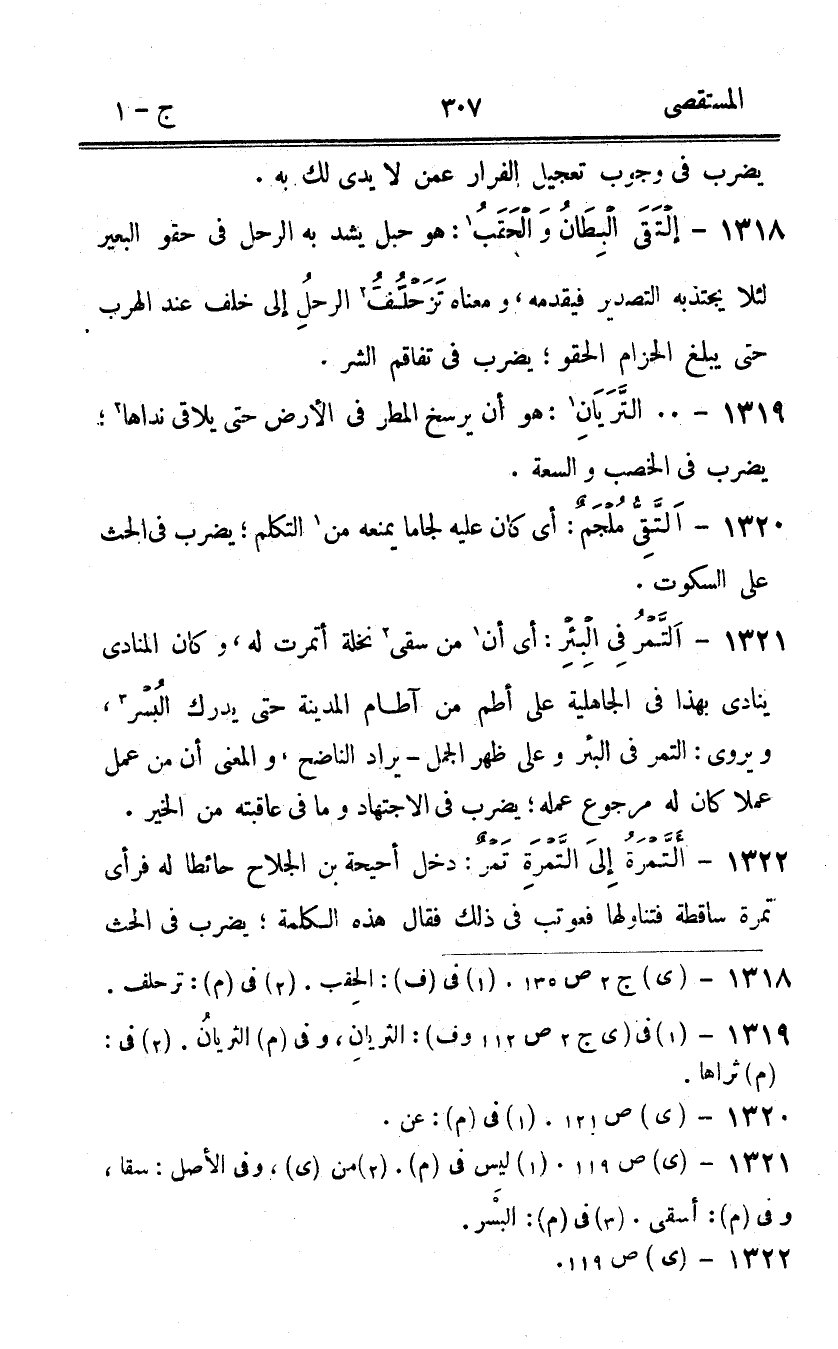 المستقصى ٣٠٧ ج - ١
يضرب فى وجوب تعجيل الفرار عمن لا يدى لك به .
١٣١٨ - اِلْتَقَى الْبِطَانُ وَ الْحَقَبُ١ : هو حبل يشد به الرحل فى حقو البعير
لئلا يجتذبه التصدير فيقدمه ، و معناه تَزَحْلُفُ٢ الرحلِ إلى خلف عند الهرب
حتى يبلغ الحزام الحقو ؛ يضرب فى تفاقم الشر .
١٣١٩ - .. الثَّرَيَانِ١ : هو أن يرسخ المطر فى الأرض حتى يلاقى نداها٢ ؛
يضرب فى الخصب و السعة .
١٣٢٠ - اَلتَّقِىُّ مُلْجَمٌ : أى كان عليه لجاما يمنعه من١ التكلم ؛ يضرب فى الحث
على السكوت .
١٣٢١ - اَلتَّمْرُ فِى الْبِئْرِ : أى أن١ من سقى٢ نخلة أتمرت له ، و كان المنادى
ينادى بهذا فى الجاهلية على أطم من آطام المدينة حتى يدرك الْبُسْر٣ ،
و يروى : التمر فى البئر و على ظهر الجمل – يراد الناضح ، و المعنى أن من عمل
عملا كان له مرجوع عمله ؛ يضرب فى الاجتهاد و ما فى عاقبته من الخير .
١٣٢٢ - أَلتَّمْرَةُ إِلَى التَّمْرَةِ تَمْرٌ : دخل أحيحة بن الجلاح حائطا له فرأى
تمرة ساقطة فتناولها فعوتب فى ذلك فقال هذه الكلمة ؛ يضرب فى الحث
١٣١٨ - (ى) ج ٢ ص ١٣٥ . (١) فى (ف) : الحِقب . (٢) فى (م) : ترحلف .
١٣١٩ - (١) فى (ى ج ٢ ص ١١٢ وف) : الثريانِ ، و فى (م) الثريانُ . (٢) فى :
(م) ثراها .
١٣٢٠ - (ى) ص ١٢١ . (١) فى (م) : عن .
١٣٢١ - (ى) ص ١١٩ . (١) ليس فى (م) . (٢) من (ى) ، وفى الأصل : سقا ،
و فى (م) : أسقى . (٣) فى (م) : البَسْر .
١٣٢٢ - (ى) ص ١١٩ .